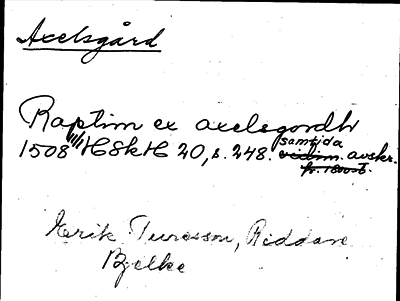 Axelsgård
Raptim ex axelsgordh
samtida
1508 11/11 HSkH 20, s. 248. vidim. avskr.
fr. 1800-t.
Erik Turesson, Riddare
Bjelke